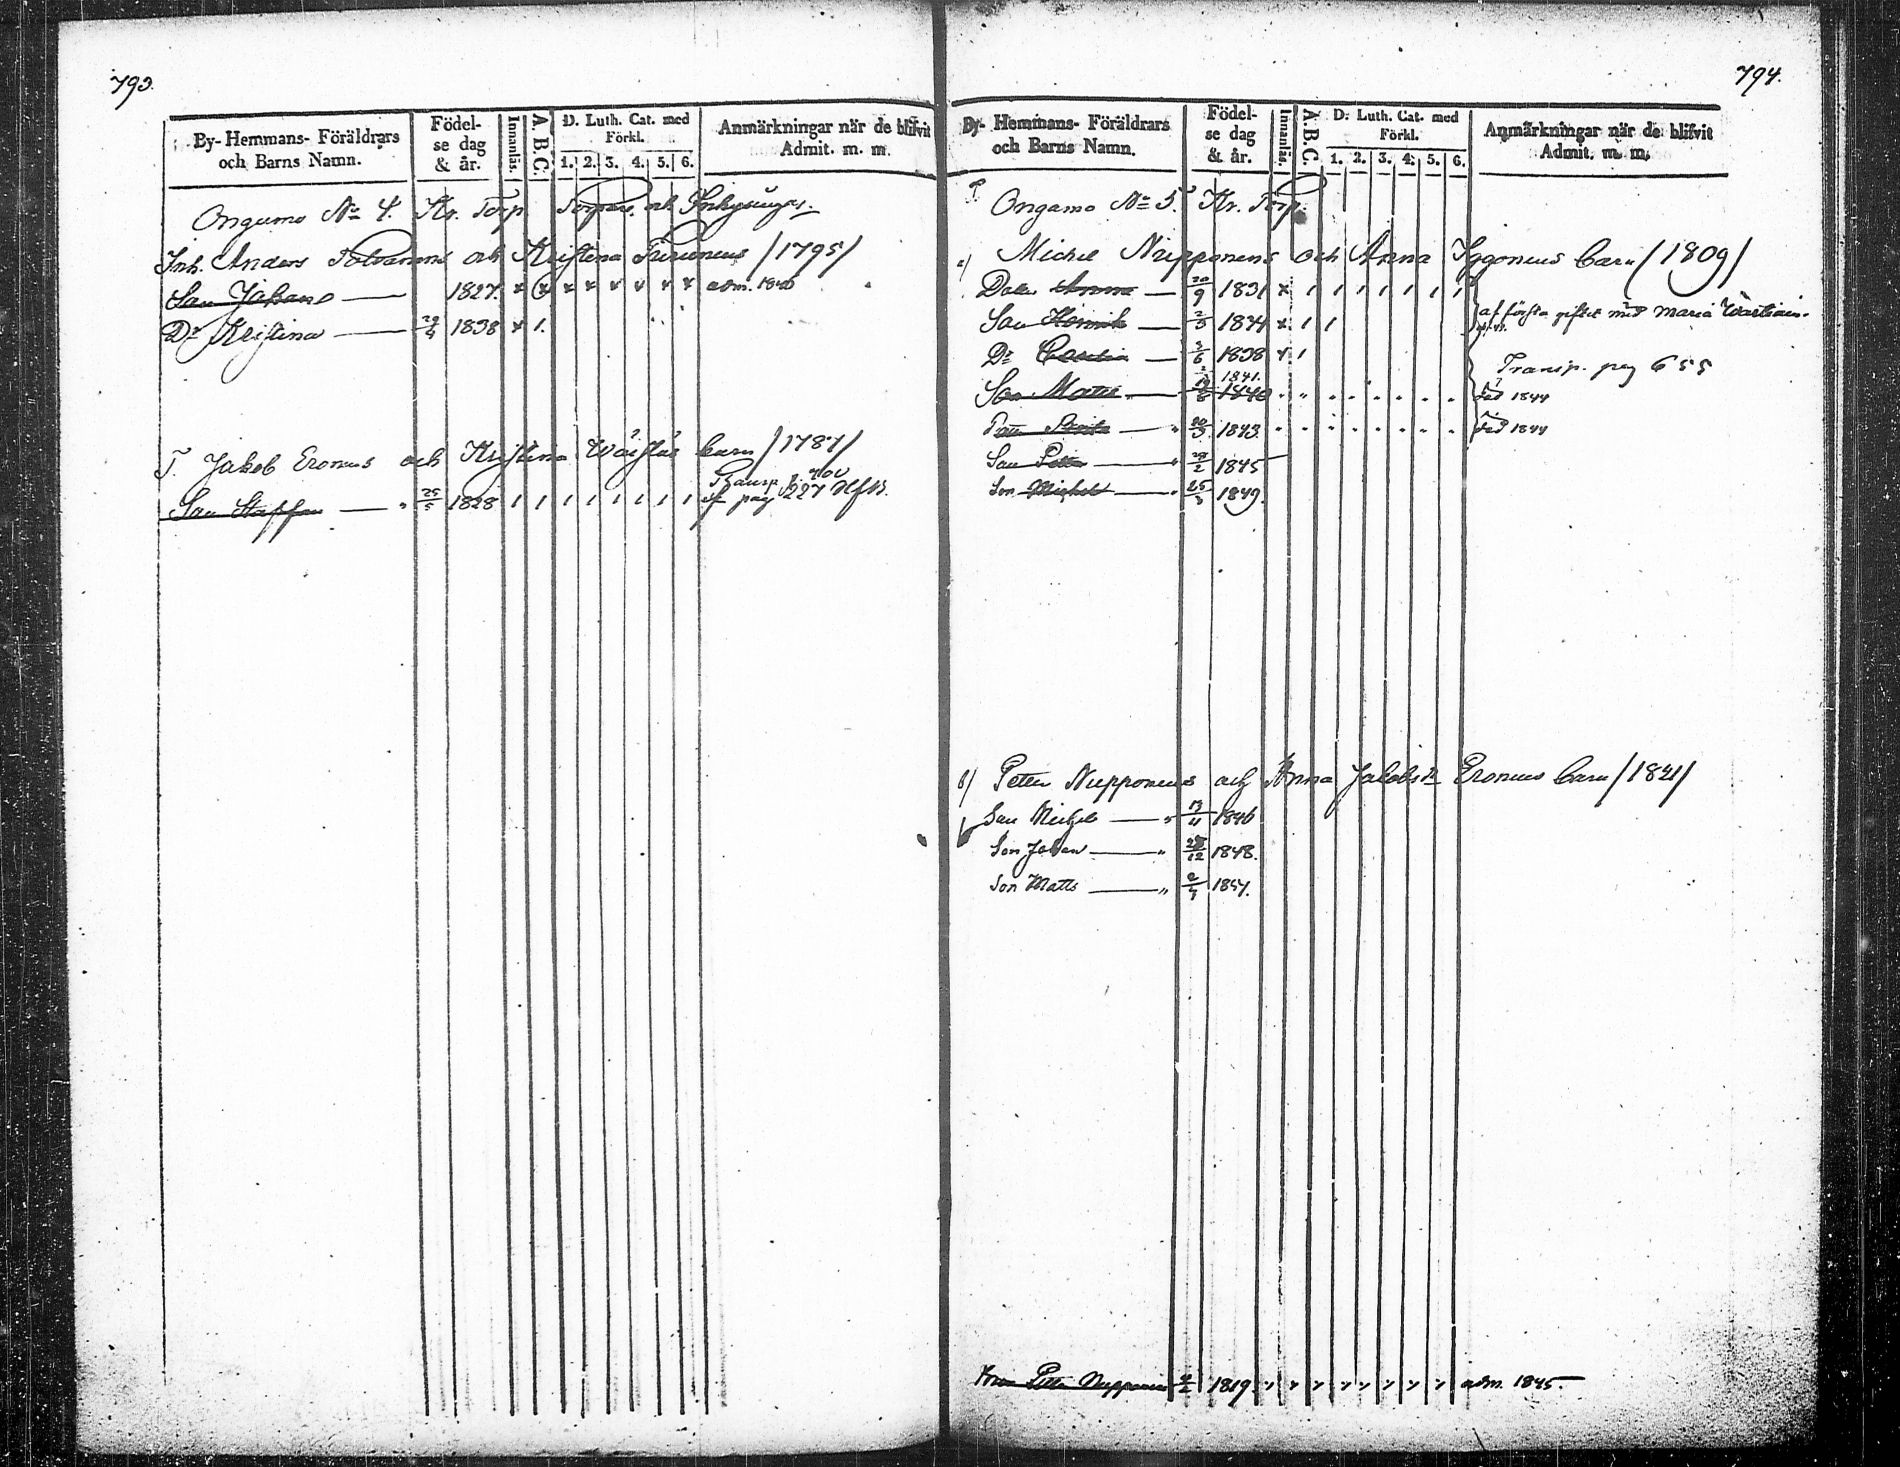 793.
By- Hemmans- Föräldrars och Barns Namn. Födel- se dag & år. Innanläs. A. B. C. D. Luth. Cat. med Förkl. 1. 2. 3. 4. 5. 6. Anmärkningar när de blifvit Admit. m. m.
Ongamo No 4. Kr. Torp Torpare och Inhysinger.
Inh. Anders Tolvanens och Kristina /1795/
Son Johan 1827. x x x x x x x x adm.
Dr Kristina 1838 x 1.
T. Jakob Eronens och Kristina barn /1787/
Transp.
Son Staffan 25/5 1828 1 1 1 1 1 1 1 1 pag 227
794.
By- Hemmans- Föräldrars och Barns Namn. Födel- se dag & år. Innanläs. A. B. C. D. Luth. Cat. med Förkl. 1. 2. 3. 4. 5. 6. Anmärkningar när de blifvit Admit. m. m.
Ongamo No 5. Kr. Torp.
a/ Michel Nupponens och Anna Iggonens barn /1809/
Dotter Anna 20/9 1831 x 1 1 1 1 1 1 1
Son Henrik 1834 x 1 1 af första giftet med Maria
Dr 1838 x 1
Transp. pag 655
1841.
Son Matts 1840 död 1844
1843. död 1844
Son Petter 1845
Son Michel 25/3 1849.
b/ Petter Nupponens och Anna Jakobsdr Eronens barn /1821/
Son Michel 13/11 1846
Son Johan 28/12 1848.
Son Matts 1851.
Petter Nupponen 1819. adm. 1845.